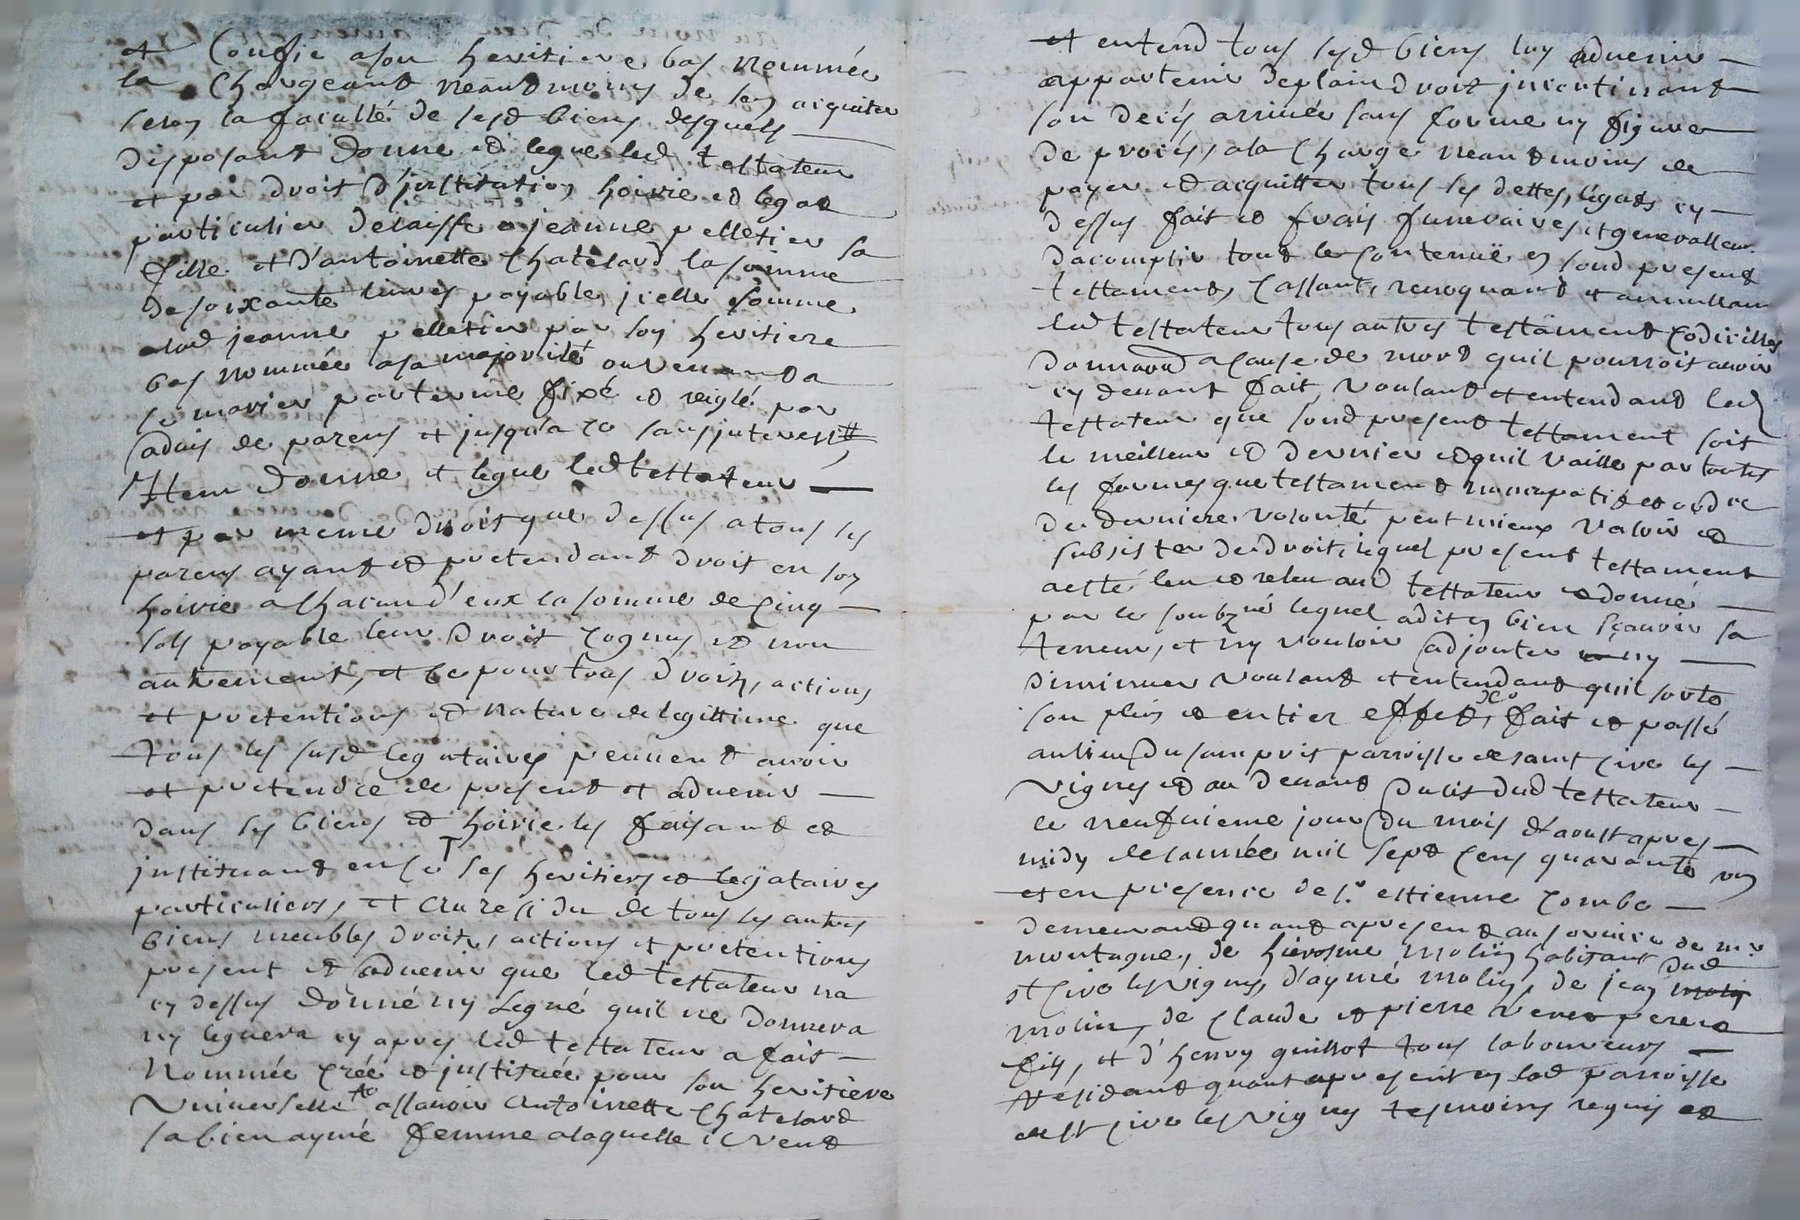 et Confie a son heritiere bas nommée
la Chargeant neantmoins de sen aiquiter
selon la faculté de sesd biens desquels
disposant donne et legue led testateur
et par droit d'institution hoirie et legat
particulier delaisse a jeanne pelletier sa
fille et d'antoinette Chatelard la somme
de soixante livres payable jcelle somme
alad jeanne pelletier par son heritiere
bas nommée asa majorité ou venant a
se marier parterme fixé et reiglé par
advis de parens et jusqu'a ce sans jnterest
Item donne et legue led testateur
et par meme droit que dessus a tous ses
parens ayant et pretendant droit en son
hoirie a Chacun d'eux la somme de Cinq
sols payable leur droit cognus et non
autrement, et ce pour tous droits, actions
et pretentions et nature de legittime que
tous les susd legataires peuvent avoir
et pretendre de present et advenir
dans ses biens et hoirie les faisant et
jnstituant en ce ses heritiers et legataires
particuliers, et au residu de tous ses autres
biens meubles droits, actions et pretentions
present et advenir que led testateur na
cy dessus donné ny Legué quil ne donnera
ny leguera cy apres led testateur a fait
Nommée créé et jnstituée pour son heritière
Universelle assavoir antoinette Chatelard
sa bien aymé femme alaquelle il veut
et entend tous sesd biens luy advenir
appartenir de plain droit jncontinant
son decés arrivée sans forme ny figure
de procés, ala Charge neantmoins de
payer et aiquitter tous ses dettes, legats cy
dessus fait et frais funeraires et generallem
dacomplir tout le Contenuë en sond present
testament, Cassant, revoquant et annullant
led testateur tous autres testament Codicilles
donnaon a Cause de mort quil pourroit avoir
cy devant fait, voulant et entendant led
testateur que sond present testament soit
le meilleur et dernier et quil vaille par toutes
les formes que testament nuncupatif et ordre
de derniere volonté peut mieux valoir et
subsister de droit, lequel present testament
a esté leu et releu aud testateur et donné
par le soubzné lequel a dit en bien sçavoir sa
teneur, et ny vouloir adjouter ny
diminuer voulant et entendant quil sorte
son plein et entier effet, fait et passé
au lieu du sampuit parroisse de saint Cire les
Vignes et au devant du lit dud testateur
le neufvieme jour du mois d'aoust apres
midy de lannée mil sept Cens quarante un
et en presence de sr estienne Combe
demeurant quant apresent au service de mr
montagne, de hierosme molin habitant dud
st Cire les Vignes, d'aymé molin, de jean
molin, de Claude et pierre
fils, et d'henry guillot tous laboureurs
Residant quant apresent en lad parroisse
de st Cire les Vignes tesmoins requis et